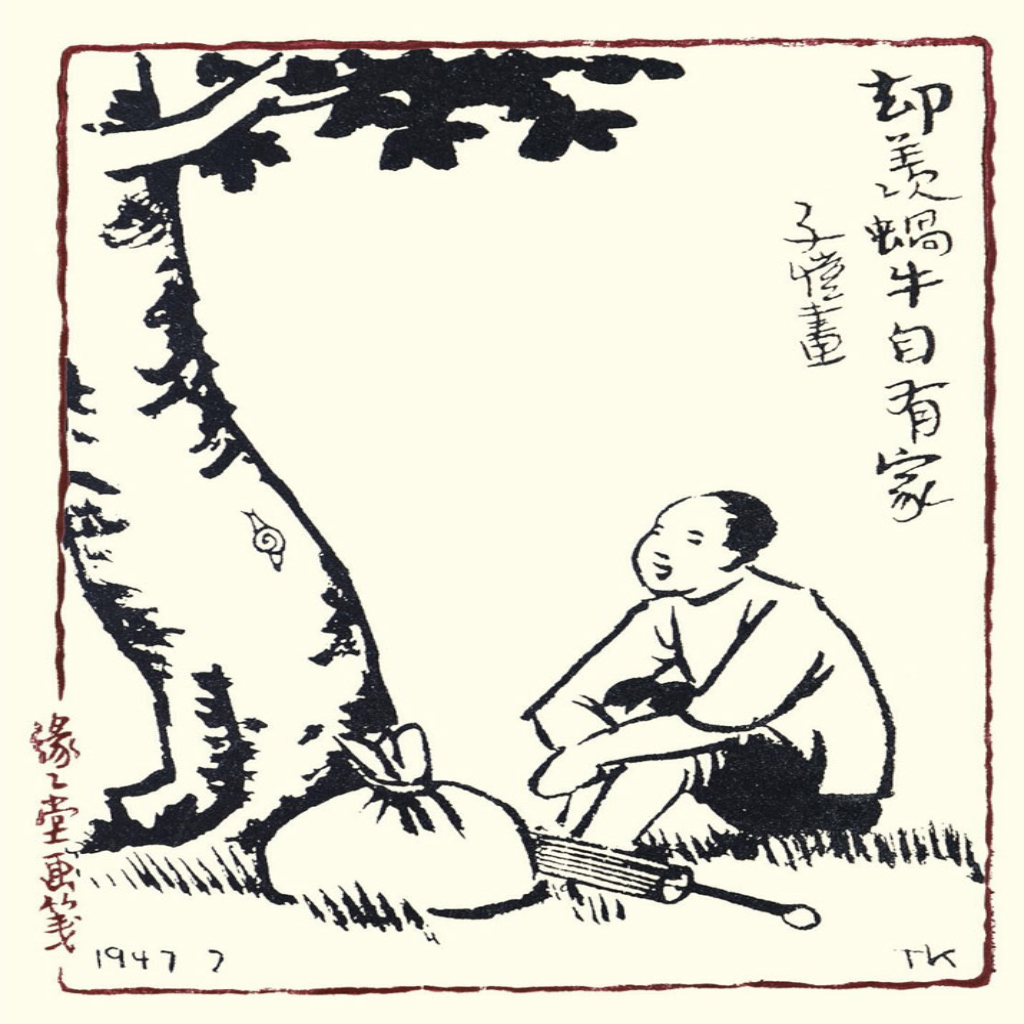 却羨蝸牛自有家
子愷畫
緣々堂画箋
1947 7
TK